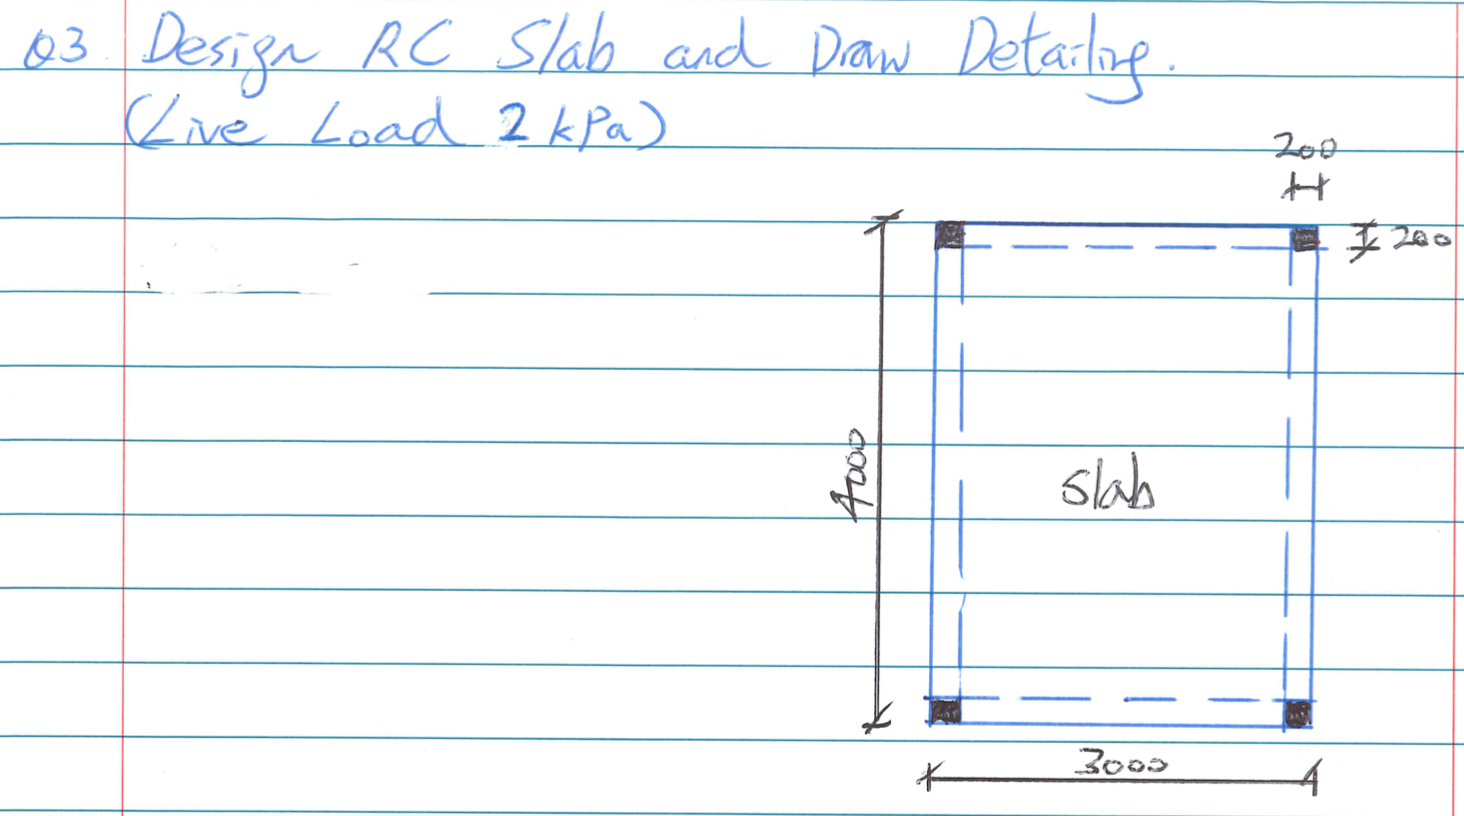 Q3. Design RC Slab and Draw Detailing.
(Live Load 2 kPa)
200
200
4000
Slab
3000